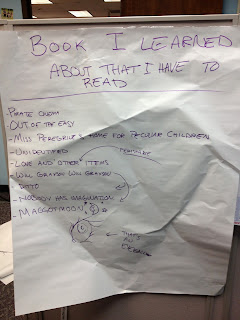 BOOK I LEARNED
ABOUT THAT I HAVE TO
READ
- PIRATE CINEMA
- OUT OF THE EASY
- MISS PEREGRINE'S HOME FOR PECULIAR CHILDREN
- UNIDENTIFIED
- LOVE AND OTHER ITEMS
- WILL GRAYSON WILL GRAYSON
- DITTO
- NOBODY HAS IMAGINATION
- MAGGOT MOON
THAT'S
AN